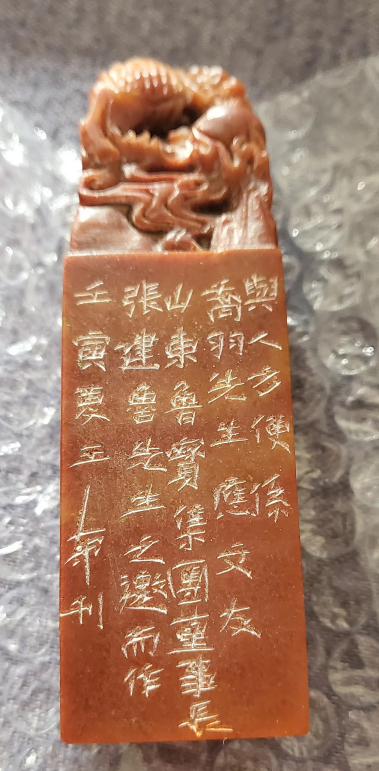 與人方便係
喬羽先生應文友
山東魯寶集團董事長
張建魯先生之邀而作
壬寅夏工